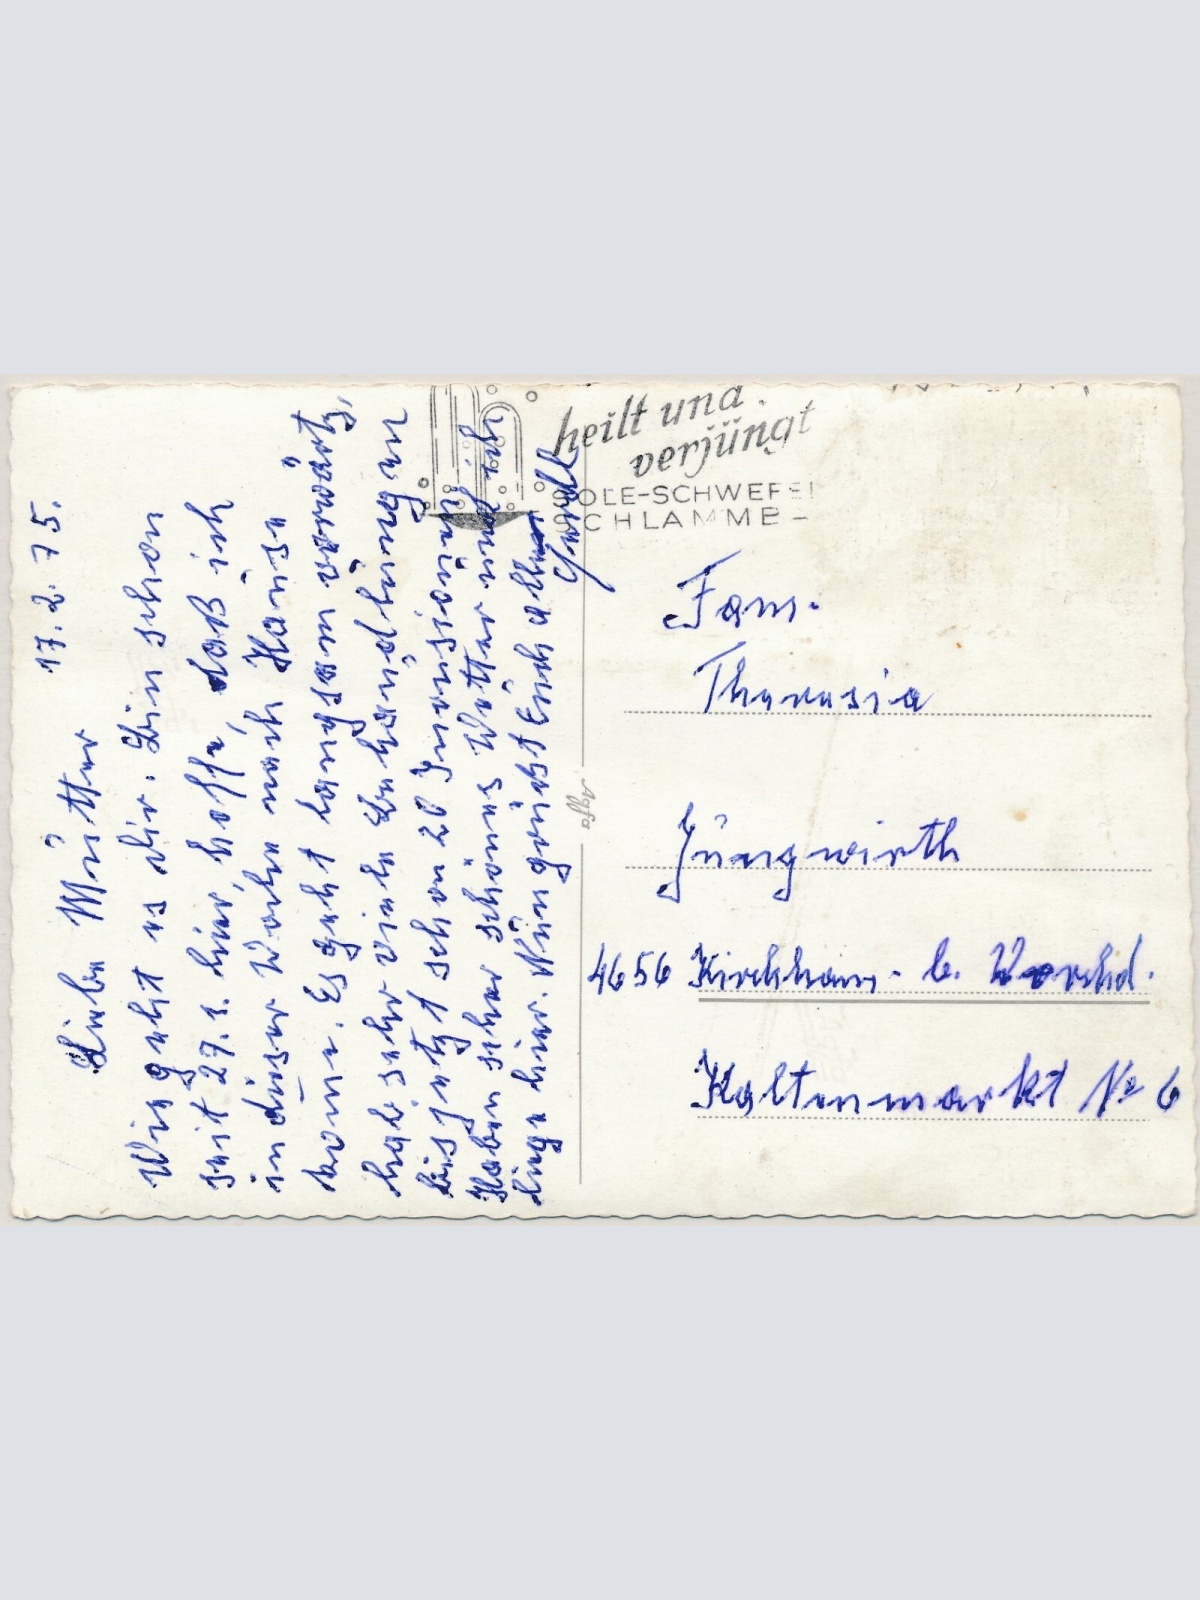 17.2.75.
Liebe Mutter
Wie geht es dir. Bin schon
seit 29.1. hier, hoffe, daß ich
in dieser Woche nach Hause
kome. Es geht langsam vorwärtz,
hab sehr viele Behandlungen
bis jetzt schon 20 Inexionen
Haben sehr schönes Wetter und ich
liege hier. Nun grüßt Euch allen
heilt und
verjüngt
SOLE-SCHWEFEL
SCHLAMME-
Agfa
Fam.
Theresia
Jungwirth
4656 Kirchham b. Vorchd.
Kaltenmarkt No 6